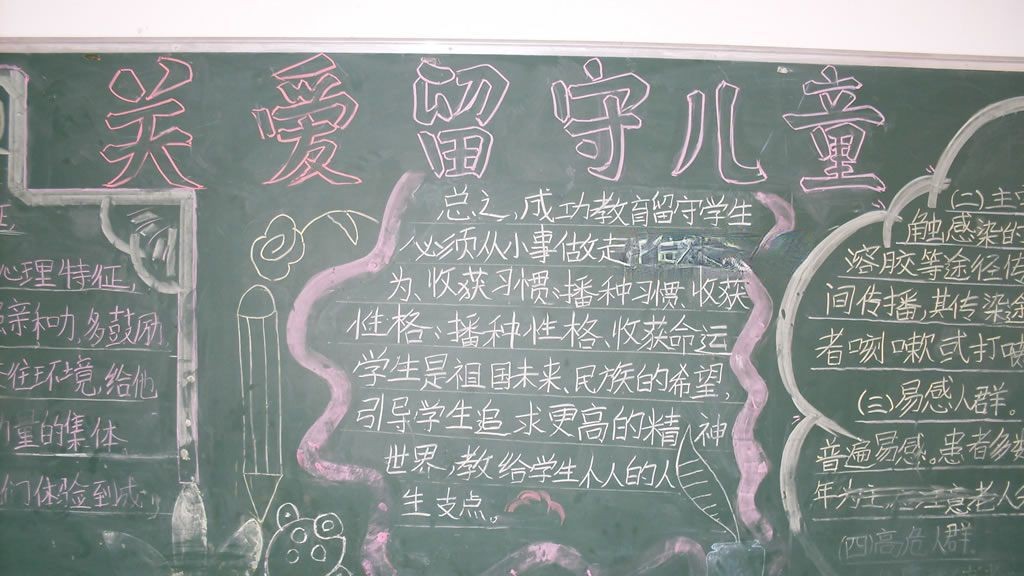 关爱留守儿童
心理特征,
亲和力,多鼓励,
住环境,给他
的集体
们体验到成
总之,成功教育留守学生
必须从小事做走
为、收获习惯;播种习惯、收获
性格;播种性格、收获命运
学生是祖国未来、民族的希望,
引导学生追求更高的精神
世界,教给学生人人的人
生支点。
(二)主
触感染的
溶胶等途径传
间传播,其传染
者咳嗽或打喷
(三)易感人群.
普遍易感。患者多
年为主
(四)高危人群.